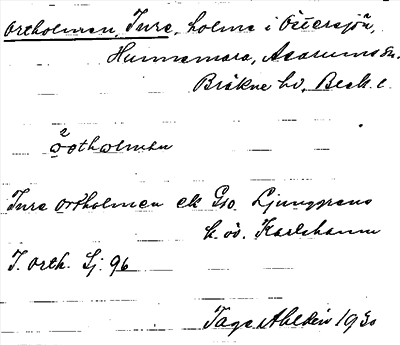 Ortholmen, Ture, holme i Östersjön,
Hunnemara, Asarums sn.
Bräkne hd, Blek. l.
2
örtholmen
Ture ortholmen ek Gso. Ljunggrens
k. öv. Karlshamn
T. orth. Lj. 96
Tage Ahldén 1930